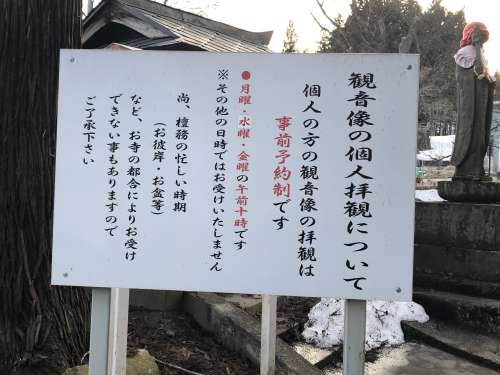 観音像の個人拝観について
個人の方の観音像の拝観は
事前予約制です
●月曜・水曜・金曜の午前十時です
※その他の日時ではお受けいたしません
尚、檀務の忙しい時期
（お彼岸・お盆等）
など、お寺の都合によりお受け
できない事もありますので
ご了承下さい